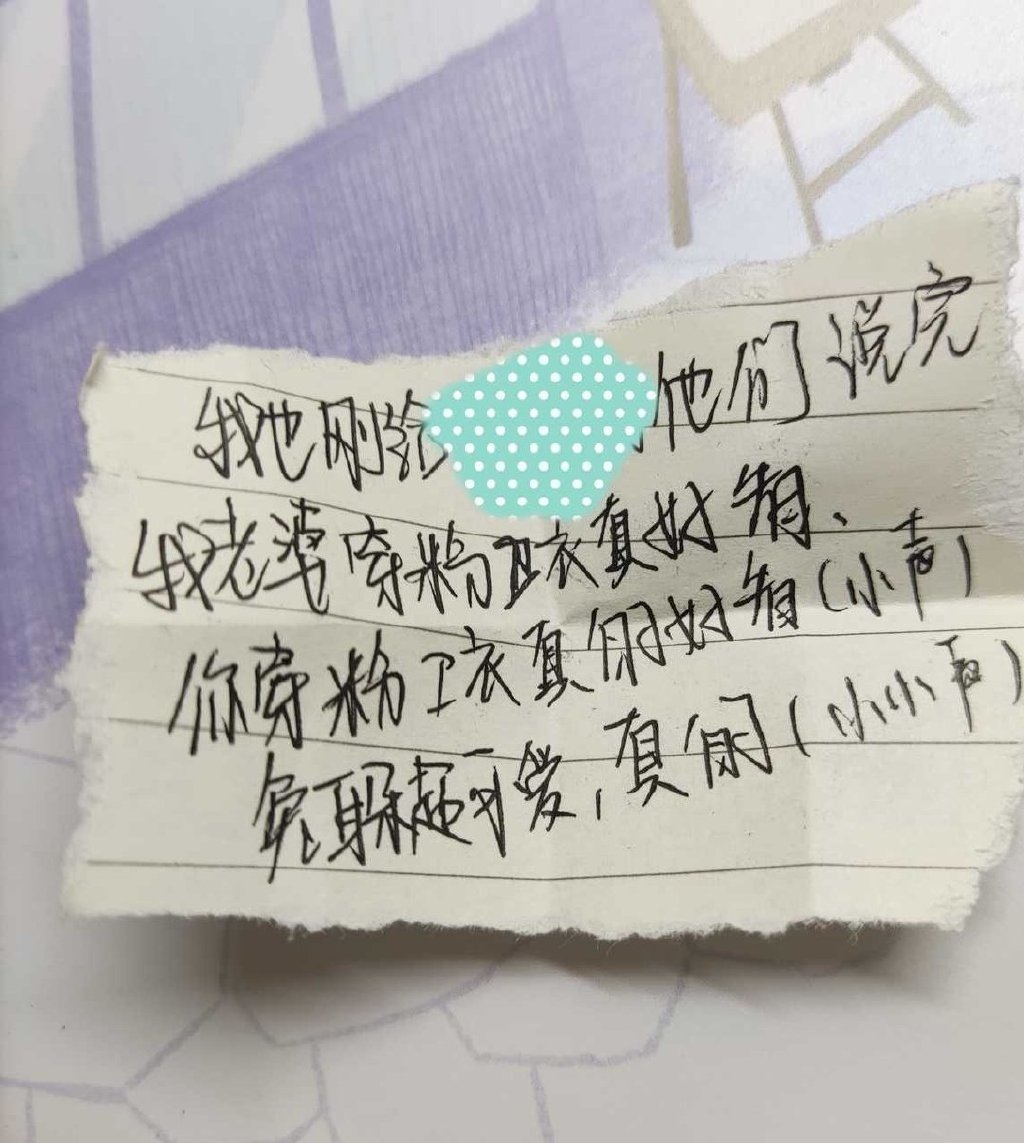 我也刚给他们说完
我老婆穿粉卫衣真好看、
你穿粉卫衣真的好看(小声)
宛躲超可爱,真的(小小声)